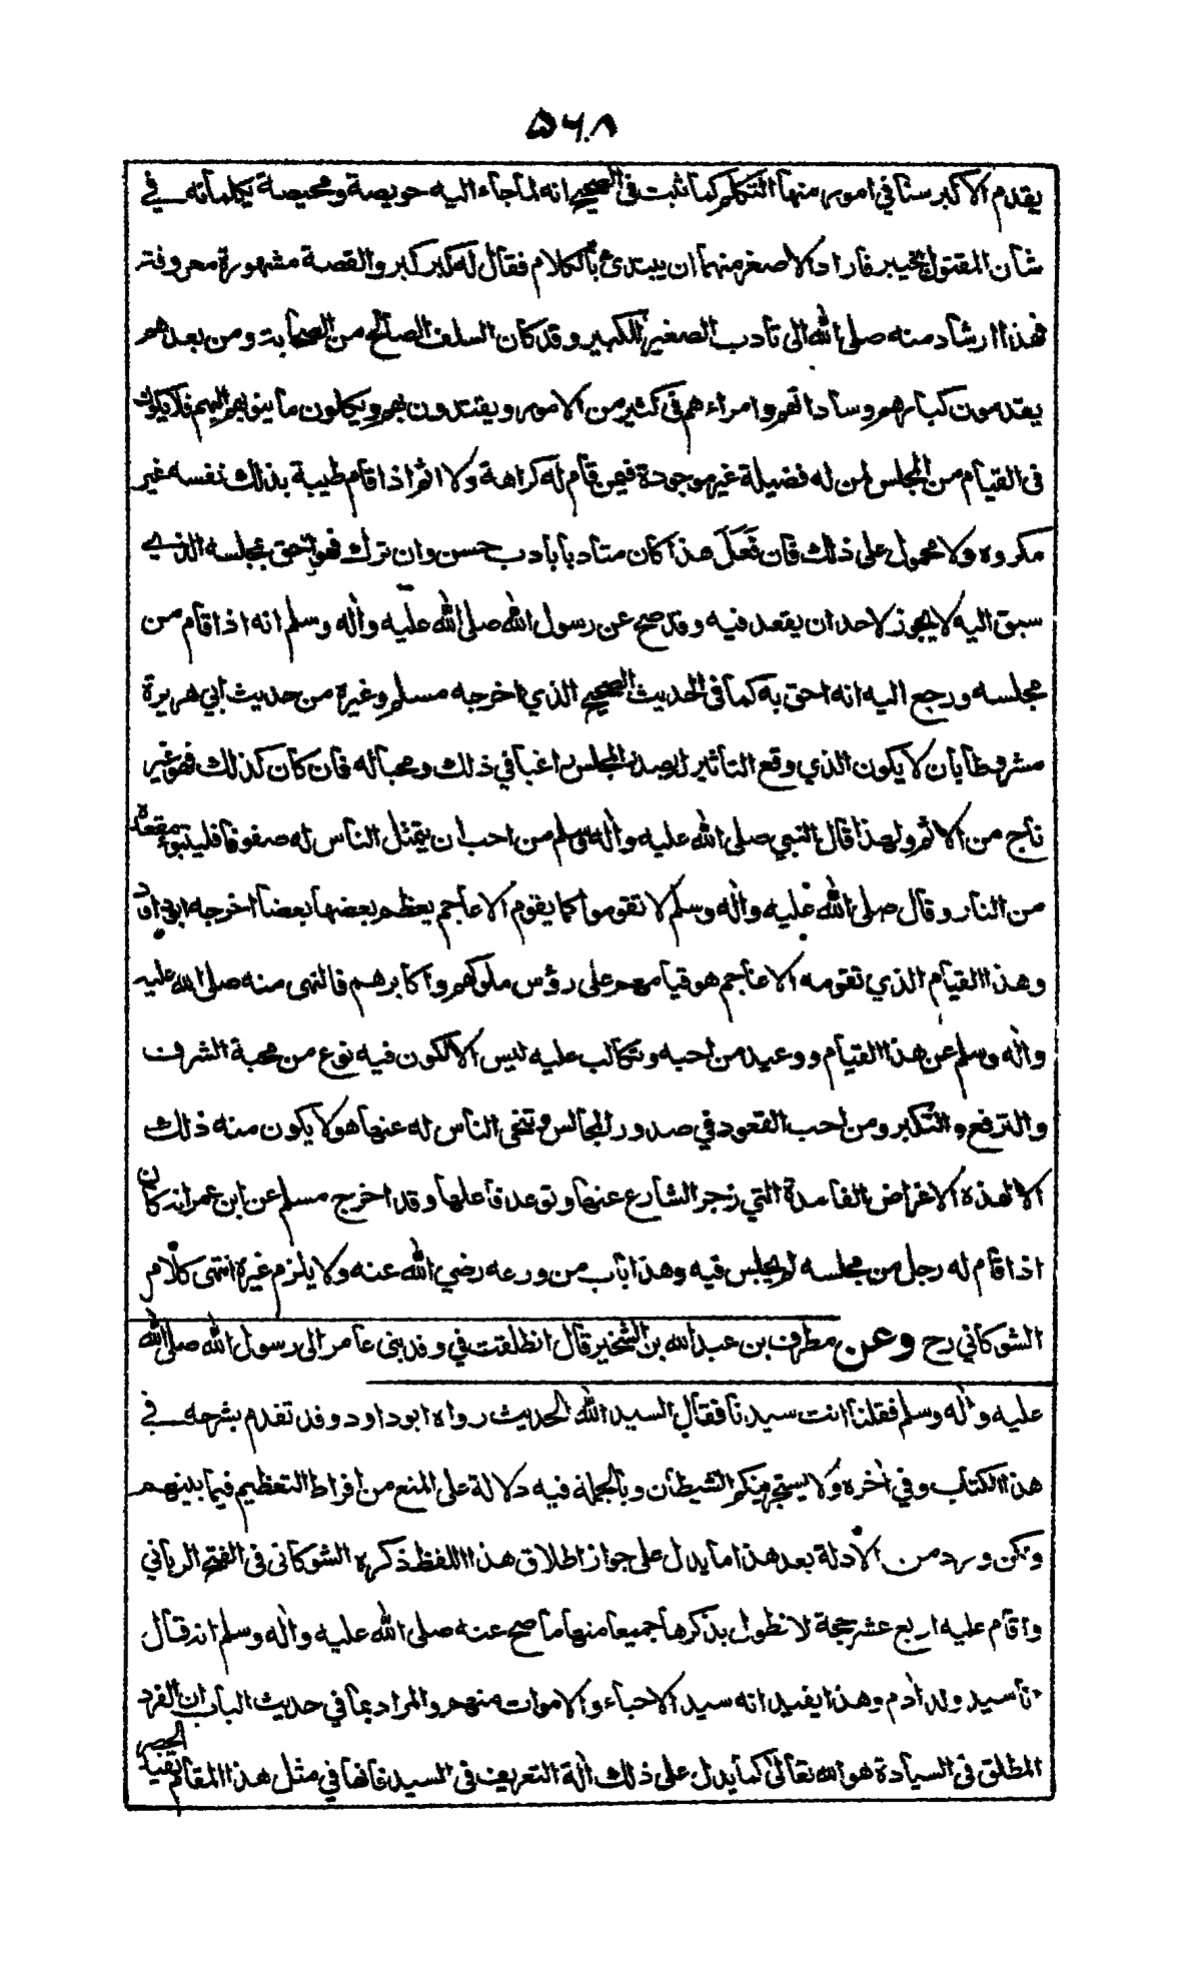 ۵۶۸
يقدم الاكبر سنا في امور منها التكلم كما ثبت في الصحيح انه لما جاء اليه حويصة ومحيصة يكلمانه في
شأن المقتول بخيبر فاراد الاصغر منهما ان يبتدئ بالكلام فقال له كبر كبر والقصة مشهورة معروفة
فهذا ارشاد منه صلى الله الى تأدب الصغير للكبير وقد كان السلف الصالح من الصحابة ومن بعدهم
يقدمون كبارهم وساداتهم وامراءهم في كثير من الامور ويقتدون بهم ويكلون ما ينوبهم اليهم فلا يكون
في القيام من المجلس لمن له فضيلة غير موجودة فيمن قام له كراهة ولا اثم اذا قام طيبة بذلك نفسه غير
مكروه ولا محمول على ذلك فان فَعَلَ هذا كان متأدبا بادب حسن وان ترك فهو احق بمجلسه الذي
سبق اليه لا يجوز لاحد ان يقعد فيه وقد صح عن رسول الله صلى الله عليه واله وسلم انه اذا قام من
مجلسه ورجع اليه انه احق به كما في الحديث الصحيح الذي اخرجه مسلم وغيره من حديث ابي هريرة
مشروطا بان لا يكون الذي وقع التأثير له بصدر المجلس راغبا في ذلك ومحبا له فان كان كذلك فهو غير
ناج من الاثم ولهذا قال النبي صلى الله عليه واله وسلم من احب ان يتمثل الناس له صفوفا فليتبوء مقعده
من النار وقال صلى الله عليه واله وسلم لا تقوموا كما يقوم الاعاجم يعظم بعضها بعضا اخرجه ابوداود
وهذا القيام الذي تقومه الاعاجم هو قيامهم على رؤس ملوكهم واكابرهم فالنهى منه صلى الله عليه
واله وسلم عن هذا القيام ووعيد من احبه وتكالب عليه ليس الا لكون فيه نوع من محبة الشرف
والترفع والتكبر ومن احب القعود في صدور المجالس وتنحى الناس له عنها هو لا يكون منه ذلك
الا لهذه الاغراض الفاسدة التي زجر الشارع عنها وتوعد فاعلها وقد اخرج مسلم عن ابن عمر انه كان
اذا قام له رجل من مجلسه لم يجلس فيه وهذا باب من ورعه رضي الله عنه ولا يلزم غيره انتهى كلام
الشوكاني رح وعن مطرف بن عبد الله بن الشخير قال انطلقت في وفد بني عامر الى رسول الله صلى الله
عليه واله وسلم فقلنا انت سيدنا فقال السيد الله الحديث رواه ابو داود وقد تقدم بشرحه في
هذا الكتاب وفي اخره ولا يستجرينكم الشيطان وبالجملة فيه دلالة على المنع من افراط التعظيم فيما بينهم
ولكن ورد من الادلة بعد هذا ما يدل على جواز اطلاق هذا اللفظ ذكره الشوكاني في الفتح الرباني
واقام عليه اربع عشر حجة لا نطول بذكرها جميعا منها ما صح عنه صلى الله عليه واله وسلم انه قال
انا سيد ولد ادم وهذا يفيد انه سيد الاحياء والاموات منهم والمراد بما في حديث الباب ان الفرد
المطلق في السيادة هو الله تعالى كما يدل على ذلك الة التعريف في السيد فانها في مثل هذا المقام تفيد الحصر